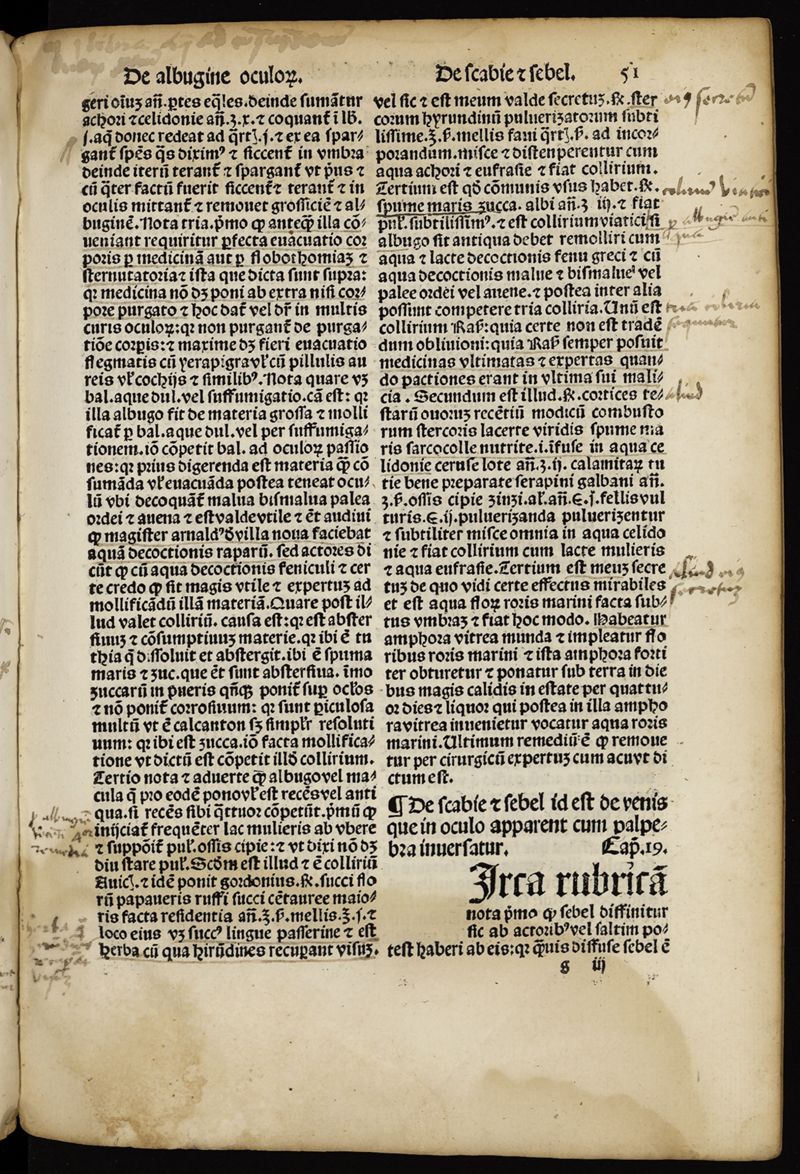 De albugine oculoꝝ.
geri oīuȝ añ. ꝑtes eq̄les. deinde sumāt̄ur
achori ⁊ celidonie añ.ʒ.x.⁊ coquant̄ ī lb̄.
j. aq̄ donec redeat ad q̄rt̄.j.⁊ ex ea spar⸗
gant̄ spēs q̄s diximꝰ ⁊ siccent̄ in vmbra
deinde iterū terant̄ ⁊ spargant̄ vt pͥus ⁊
cū q̄ter factū fuerit siccent̄ ⁊ terant̄ ⁊ in
oculis mittant̄ ⁊ remouet grossiciē ⁊ al⸗
buginē. Nota tria. pͥmo ꝙ anteq̄ꝫ illa cō⸗
ueniant requiritur ꝑfecta euacuatio cor
poris ꝑ medicinā aut ꝑ flobothomiaȝ ⁊
sternutatoria ⁊ ista que dicta sunt supra:
qꝛ medicina nō dȝ poni ab extra nisi cor⸗
pore purgato ⁊ hoc dat̄ vel dr̄ in multis
curis oculoꝝ: qꝛ non purgant̄ de purga⸗
tiōe corpis: ⁊ maxime dȝ fieri euacuatio
flegmatis cū yerapi: grav̄l cū pillulis au
reis vl̄ cochijs ⁊ similibꝰ. Nota quare vȝ
bal. aque dul. vel suffumigatio. cā est: qꝛ
illa albugo fit de materia grossa ⁊ molli
ficat̄ ꝑ bal. aque dul. vel per suffumiga⸗
tionem. iō cōpetit bal. ad oculoꝝ passio
nes: qꝛ prius digerenda est materia q̄ꝫ cō
sumāda vl̄ euacuāda postea teneat ocu⸗
lū vbi decoquāt̄ malua bismalua palea
ordei ⁊ auena ⁊ est valde vtile ⁊ ēt audiui
ꝙ magister arnaldꝰ d̓ villa noua faciebat
aquā decoctionis raparū. sed actores di
cūt ꝙ cū aqua decoctionis feniculi ⁊ cer
te credo ꝙ sit magis vtile ⁊ expertuȝ ad
mollificādū illā materiā. Quare post il⸗
lud valet colliriū. causa est: qꝛ est abster
siuuȝ ⁊ cōsumptiuuȝ materie. qꝛ ibi ē tu
thia q̄ dissoluit et abstergit. ibi ē spuma
maris ⁊ ȝuc. que ēt sunt abstersiua. īmo
ȝuccarū in pueris qn̄qꝫ ponit̄ suꝑ oclōs
⁊ nō ponit̄ corrosiuum: qꝛ sunt ꝑiculosa
multū vt ē calcanton sȝ simpl̄r resoluti
uum: qꝛ ibi est ȝucca. iō facta mollifica⸗
tione vt dictū est cōpetit illd̓ collirium.
Tertio nota ⁊ aduerte q̄ꝫ albugo vel ma⸗
cula q̄ pro eodē ponōr vl̄ est recēs vel anti
qua. si recēs sibi q̄ttuor cōpetūt. pͥmū ꝙ
inijciat̄ frequēter lac mulieris ab vbere
⁊ suppōit̄ pul̄. ossis cipie: ⁊ vt dixi nō dȝ
diu stare pul̄. Scd̄m est illud ⁊ ē colliriū
Auic̄. ⁊ idē ponit gordonius. ℞. succi flo
rū papaueris ruffi succi cētauree maio⸗
ris facta residentia añ.ʒ.ß.mellis.ʒ.j.⁊
loco eius vȝ succꝰ lingue passerine ⁊ est
herba cū qua hirūdines recuꝑant visuȝ.
De scabie ⁊ sebel. 51
vel sic ⁊ est meum valde secretuȝ. ℞. ster
corum hyrundinū puluerizatorum subti
lissime.ʒ.ß.mellis faui q̄rt̄.ß. ad incor⸗
porandum. misce ⁊ distenperentur cum
aqua achori ⁊ eufrasie ⁊ fiat collirium.
Tertium est qd̓ cōmunis vsus habet. ℞.
spume maris ȝucca. albi añ.ʒ iij.⁊ fiat
pul̄. subtilissimꝰ. ⁊ est collirium viatici si
albugo sit antiqua debet remolliri cum
aqua ⁊ lacte decoctionis fenu greci ⁊ cū
aqua decoctionis malue ⁊ bismalue vel
palee ordei vel auene. ⁊ postea inter alia
possunt competere tria colliria. Unū est
collirium Raß: quia certe non est tradē
dum obliuioni: quia Raß semper posuit
medicinas vltimatas ⁊ expertas quan⸗
do pactiones erant in vltima sui mali⸗
cia. Secundum est illud. ℞. cortices te⸗
starū ouoruȝ recētiū modicū combusto
rum stercoris lacerte viridis spume ma
ris sarcocolle nutrite. i. īfuse in aqua ce
lidonie ceruse lote añ.ʒ.ij. calamitaꝝ tu
tie bene preparate serapini galbani añ.
ʒ.ß.ossis cipie ȝinȝi. al̄. añ.Э.j.fellis vul
turis.Э.ij.puluerizanda puluerizentur
⁊ subtiliter misce omnia in aqua celido
nie ⁊ fiat collirium cum lacte mulieris
⁊ aqua eufrasie. Tertium est meuȝ secre
tuȝ de quo vidi certe effectus mirabiles
et est aqua floꝝ roris marini facta sub⸗
tus vmbraȝ ⁊ fiat hoc modo. Habeatur
amphora vitrea munda ⁊ impleatur flo
ribus roris marini ⁊ ista amphora forti
ter obturetur ⁊ ponatur sub terra in die
bus magis calidis in estate per quattu⸗
or dies ⁊ liquor qui postea in illa ampho
ra vitrea inuenietur vocatur aqua roris
marini. Ultimum remediū ē ꝙ remoue
tur per cirugicū expertuȝ cum acu vt di
ctum est.
¶ De scabie ⁊ sebel id est de venis
que in oculo apparent cum palpe⸗
bra inuersatur. Cap̄. 19.
Irca rubricā
nota pͥmo ꝙ sebel diffinitur
sic ab actoribꝰ vel saltim po⸗
test haberi ab eis: qꝛ q̄ꝫuis diffuse sebel ē
g iij